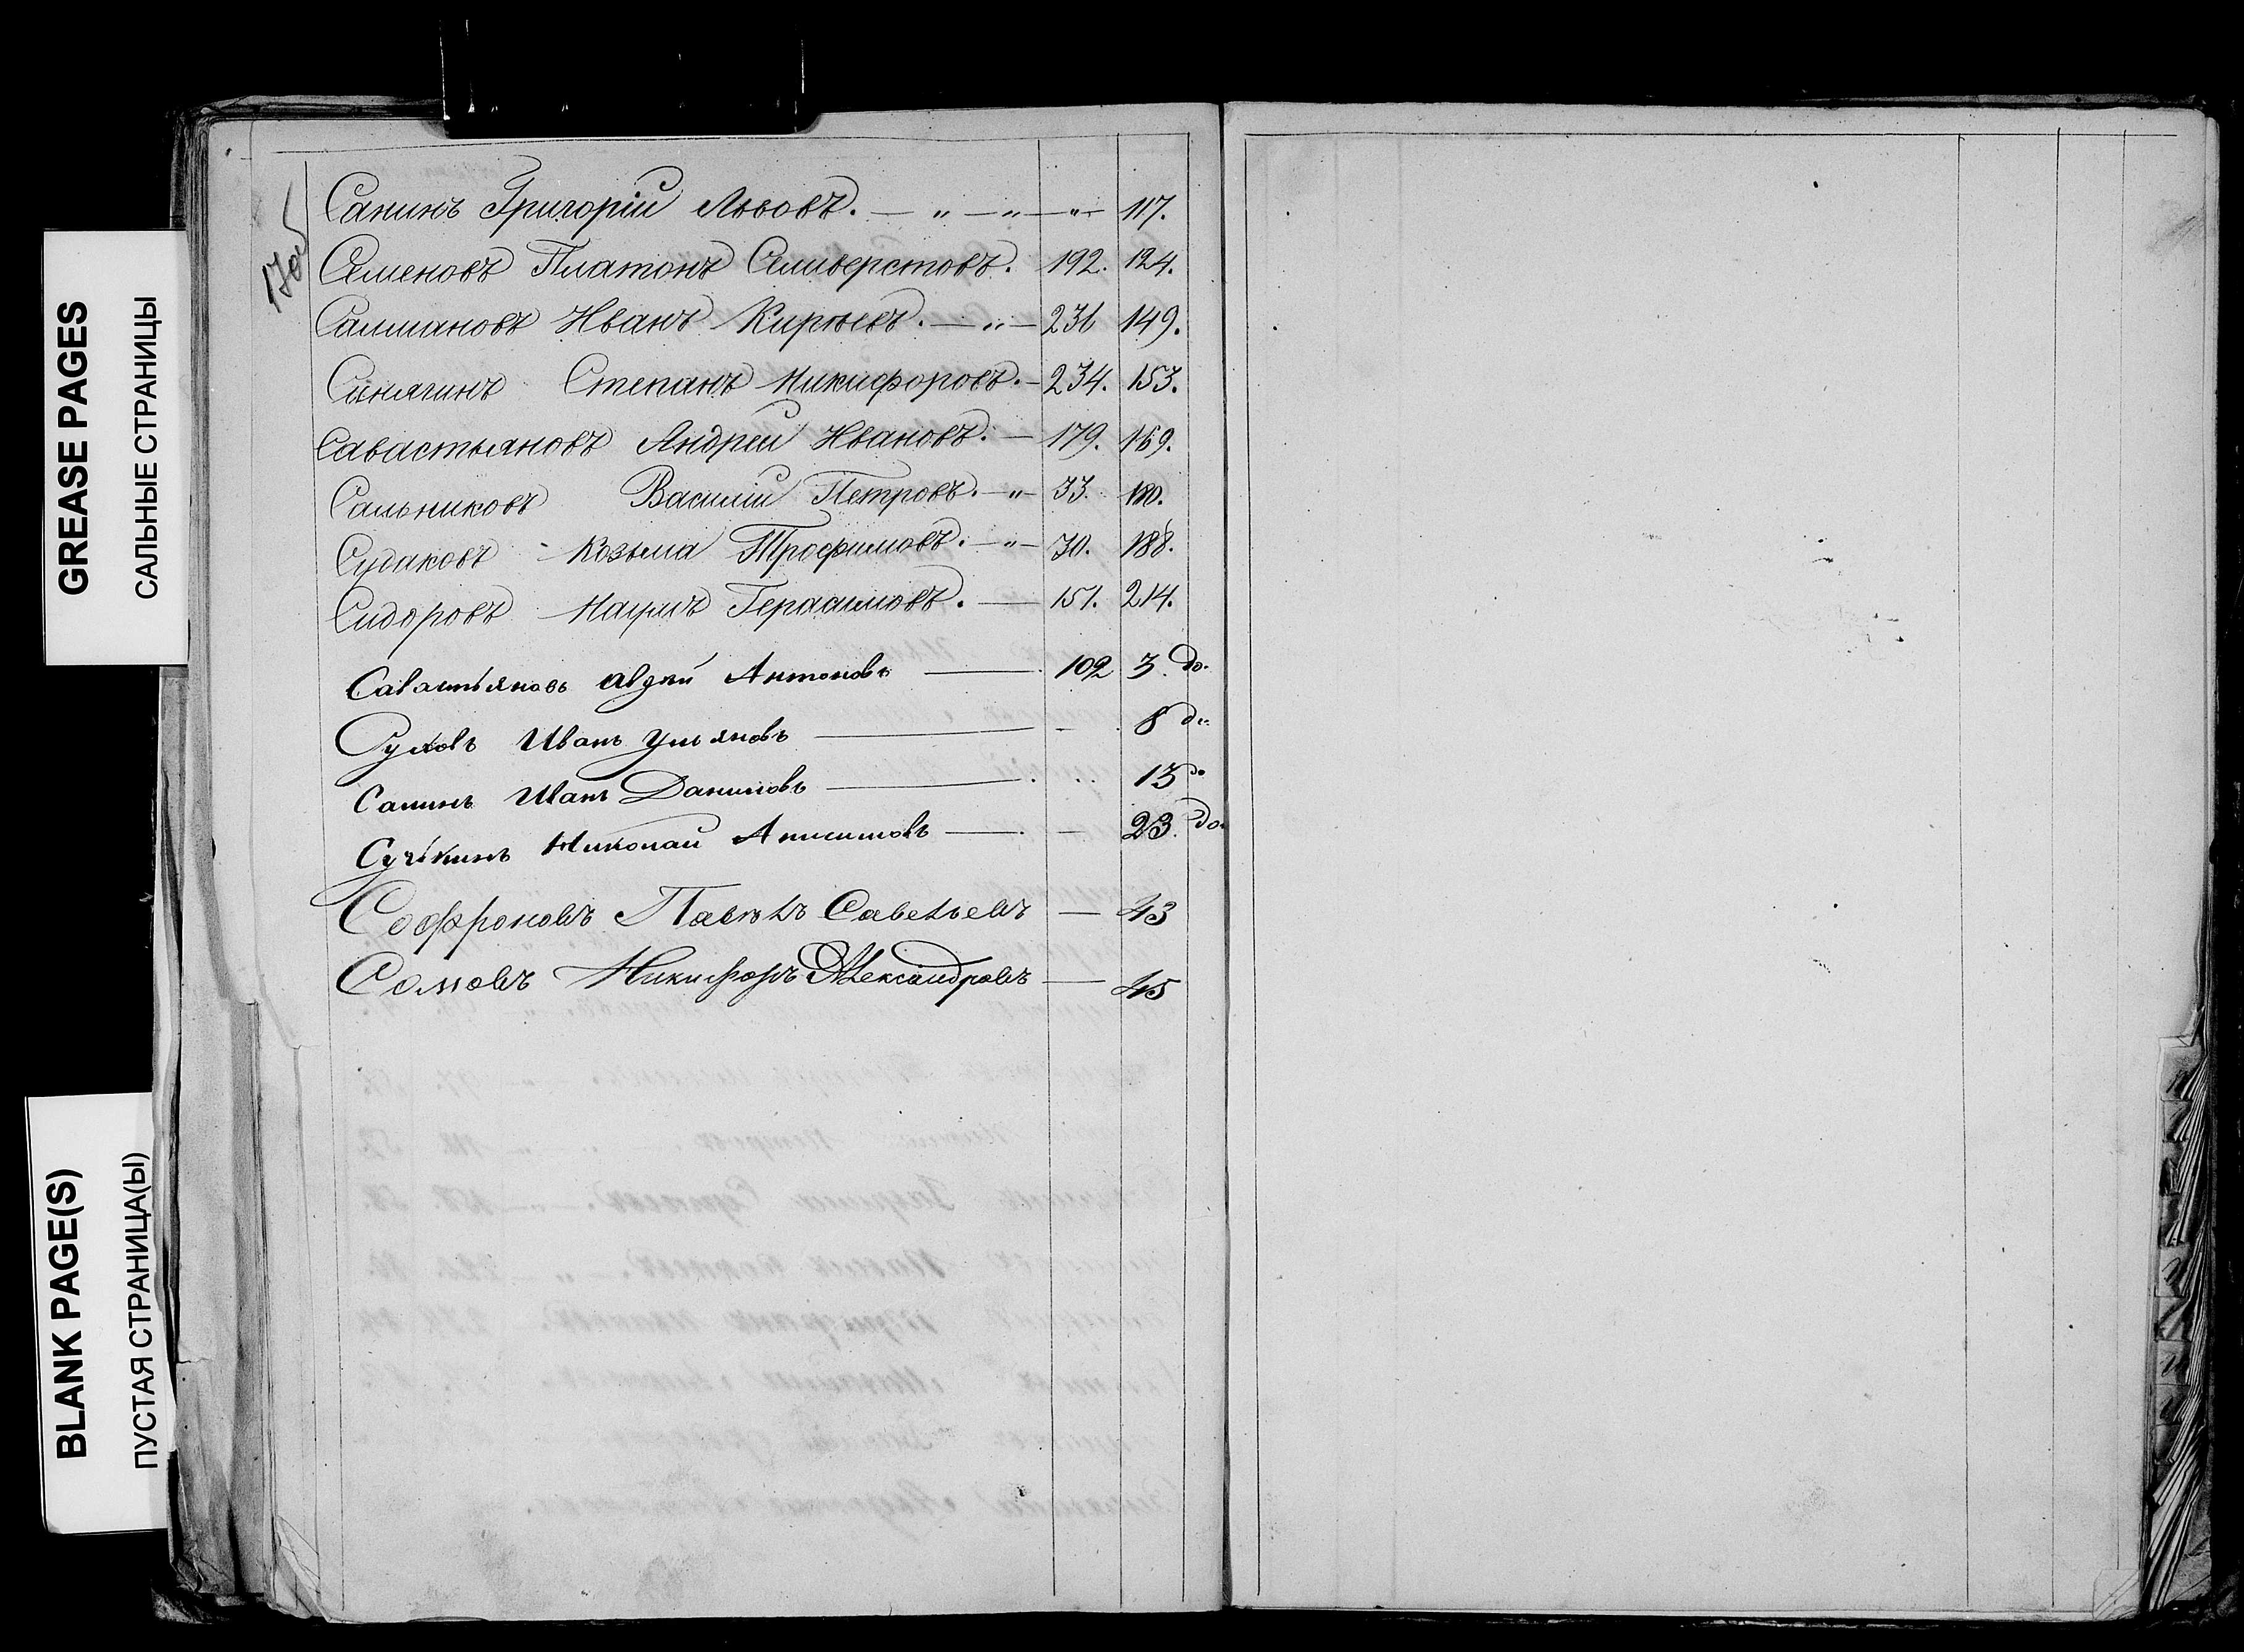 GREASE PAGES
САЛЬНЫЕ СТРАНИЦЫ
BLANK PAGE(S)
ПУСТАЯ СТРАНИЦА(Ы)
Санинъ Григорій Львовъ. — " — " — " — 117.
Семеновъ Платонъ Селиверстовъ. 192. 124.
Салмановъ Иванъ Кирѣевъ. — " — 231 149.
Синягинъ Степанъ Никифоровъ. — 234. 153.
Савастьяновъ Андрей Ивановъ. — 179. 169.
Сальниковъ Василій Петровъ. — " — 33. 180.
Судаковъ - Козьма Трофимовъ. — " — 30. 188.
Сидоровъ Наумъ Герасимовъ. — 151. 214.
Савастьяновъ Авдѣй Антоновъ — 102 3. до.
Суховъ Иванъ Ульяновъ — 8 до.
Санинъ Иванъ Даниловъ — 13 до
Сучкинъ Николай Анисимовъ — 23. до.
Софроновъ Павелъ Савельевъ — 43
Сомовъ Никифоръ Александровъ — 45